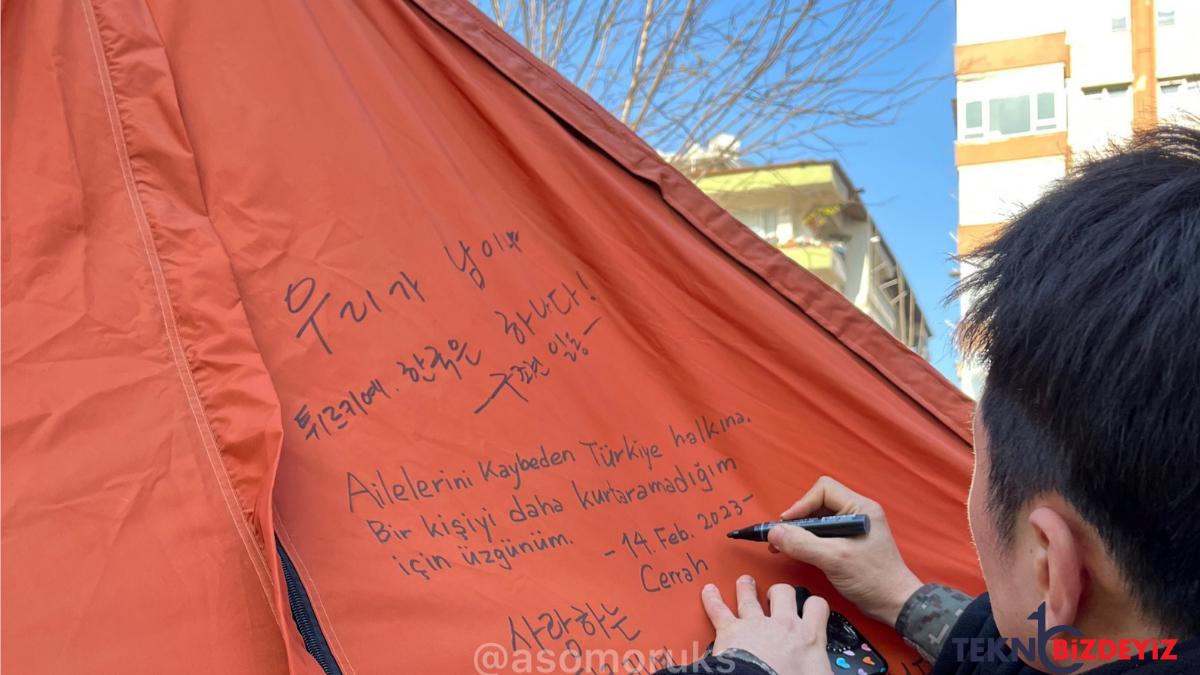 우리가 남이가
튀르키예. 한국은 하나다!
- 구조견 일동 -
Ailelerini Kaybeden Türkiye halkına,
Bir kişiyi daha kurtaramadığım
için üzgünüm.
- 14. Feb. 2023 -
Cerrah
사랑하는
@asomoruks
TEKNOBİZDEYİZ